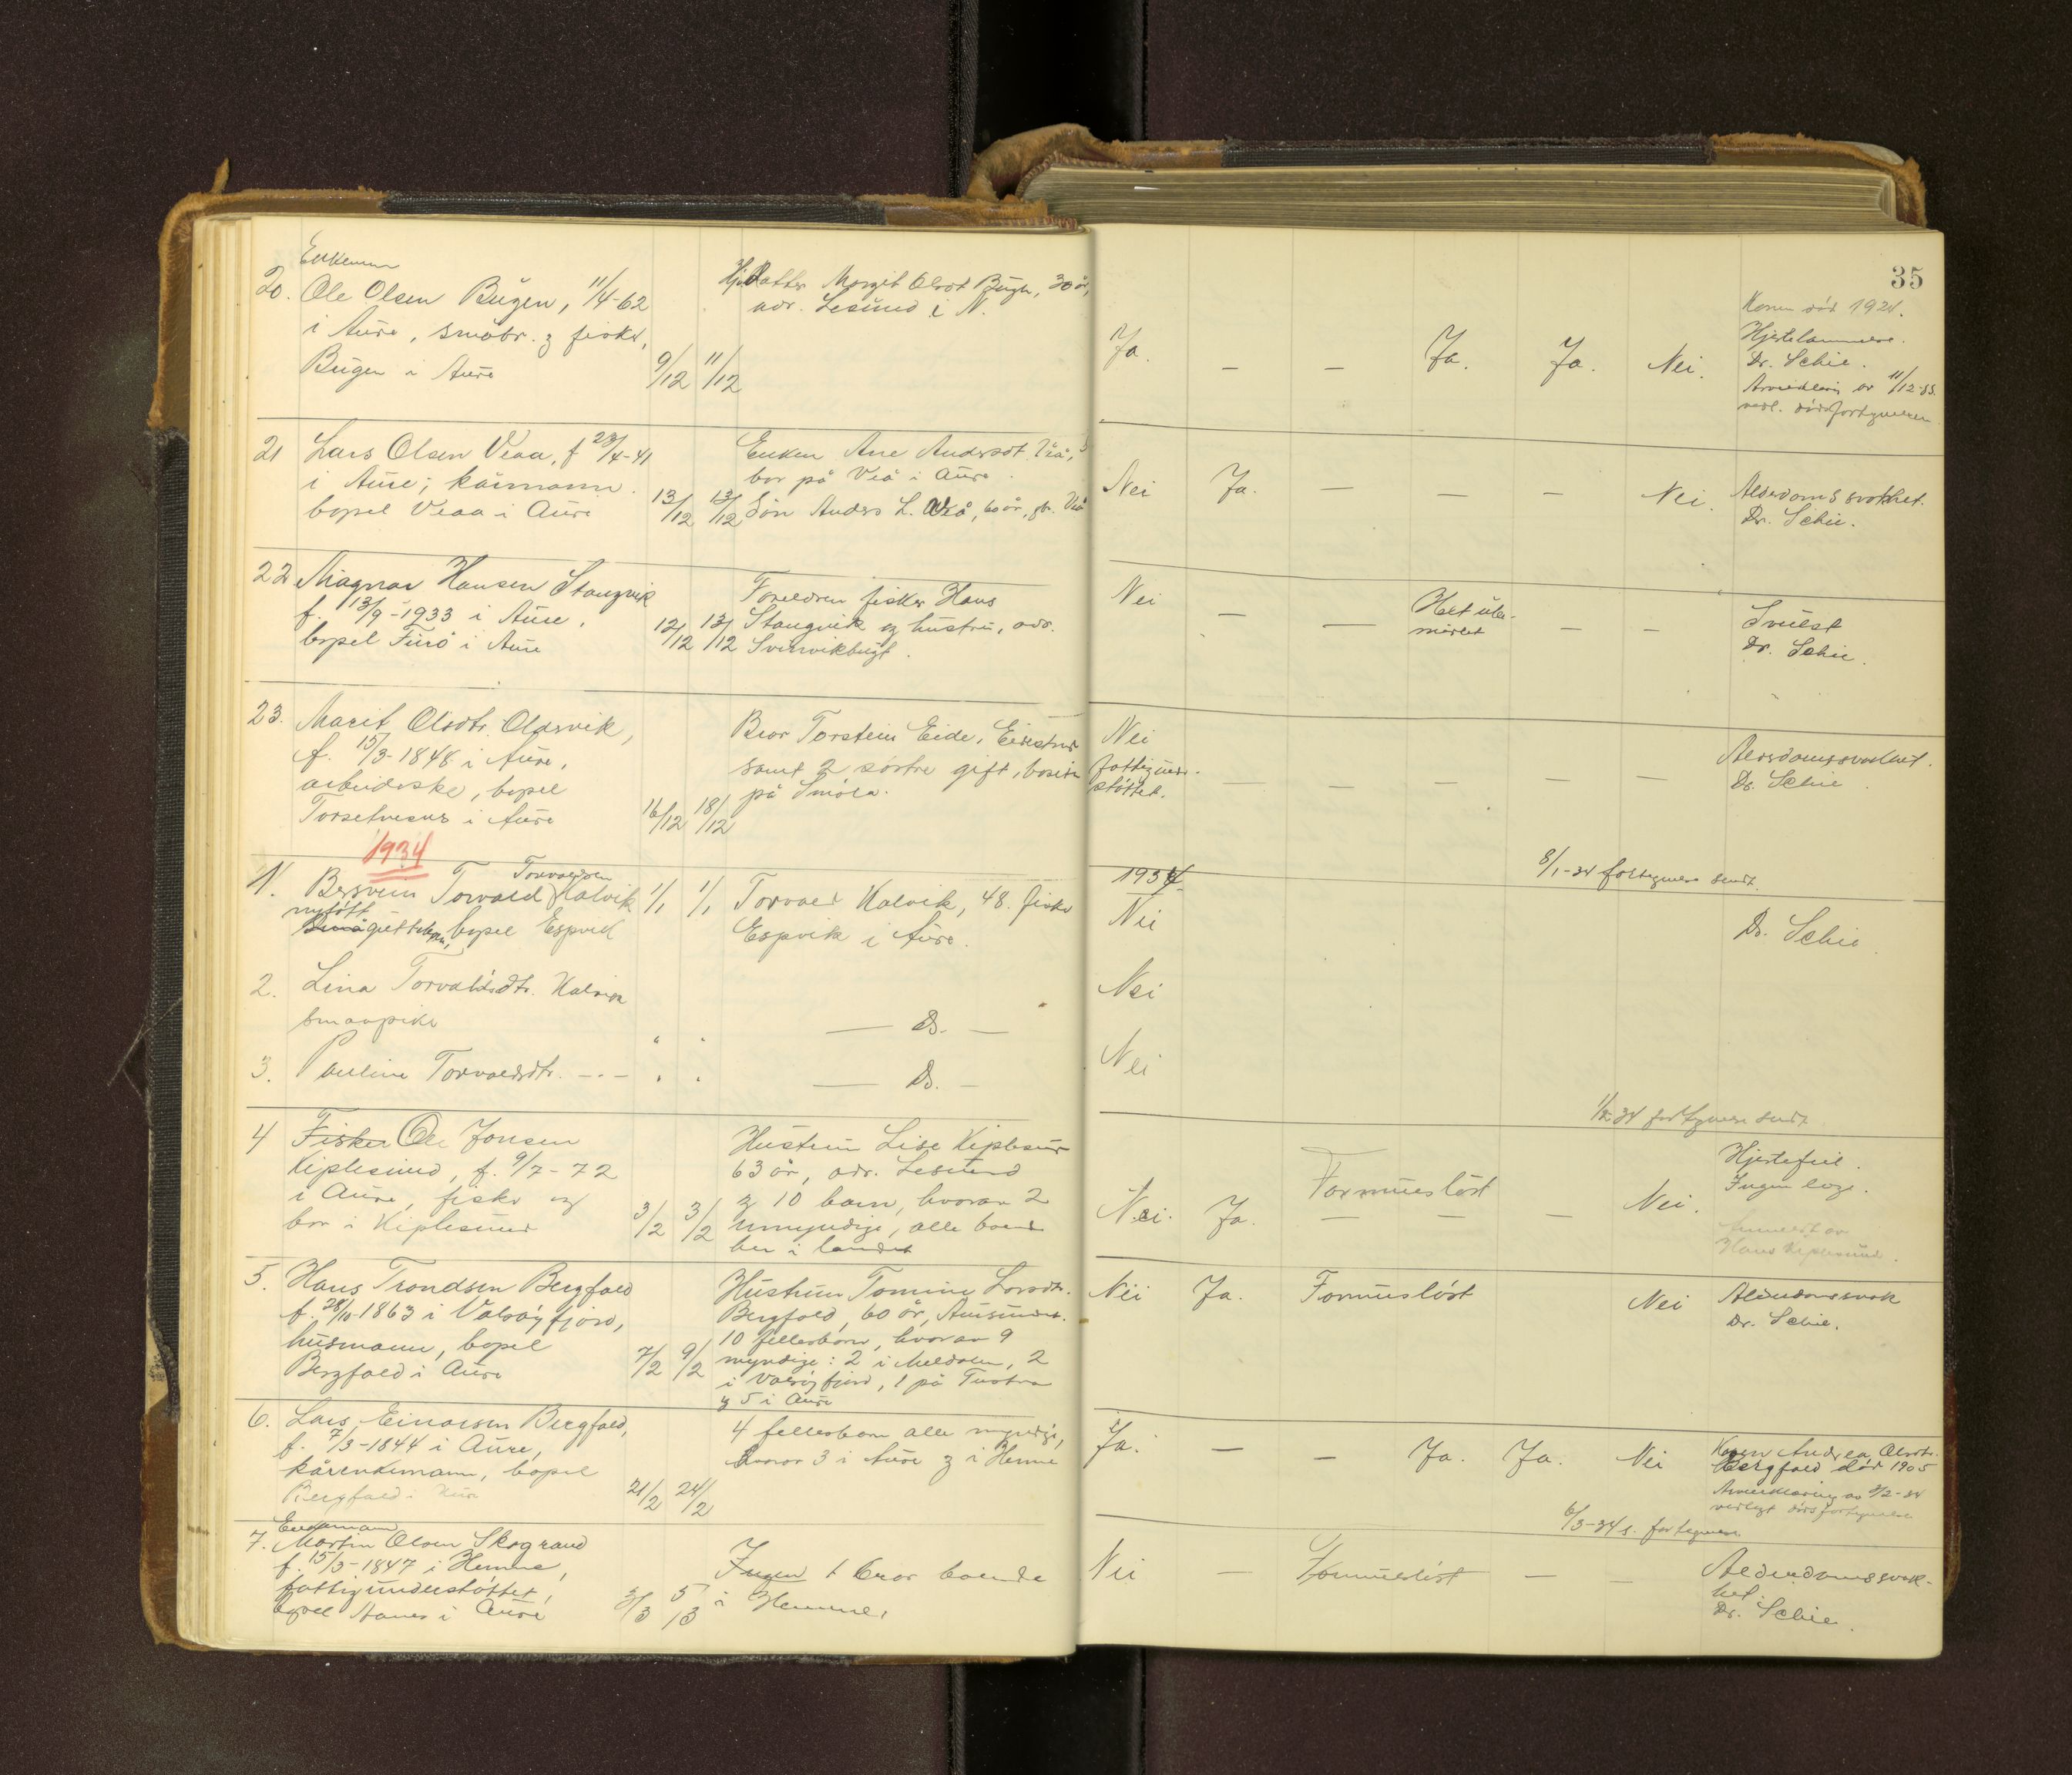 35
Enkemann
20. Ole Olsen Bugen, 11/4-62
i Aure, småbr. & fisker,
Bugen i Aure
9/12 11/12
Datter Margit Olsdt Bugen, 30 år,
adr. Lesund i N.
Ja. — — Ja. Ja. Nei.
Konen død 1924.
Hjertelammelse.
Dr. Schie.
11/12-33.
vedl. dødsfortegnelsen
21 Lars Olsen Veaa, f 23/4-41
i Aure; kårmann.
bopel Veaa i Aure
13/12 13/12
Enken Ane Andersdt Veå,
bor på Veå i Aure.
Søn Anders L. Veå, 60 år, gbr. Veå
Nei Ja. — — — Nei.
Alderdomssvakhet.
Dr. Schie.
22 Magnar Hansen Stangvik
f. 13/9-1933 i Aure,
bopel Furø i Aure
12/12 13/12
Foreldren fisker Hans
Stangvik og hustru, adr.
Nei — — — —
Svulst
Dr. Schie.
23. Marit Olsdtr. Oldervik,
f. 15/3-1848 i Aure,
arbeiderske, bopel
Torsetnesus i Aure
16/12 18/12
Bror Torstein Eide,
samt 2 søstre gift, bositt
på Smøla.
Nei
fattigunder-
støttet. — — — — —
Alderdomssvakhet.
Dr. Schie
1934
1. Torvaldsen
Torvald Halvik
bopel Espvik
1/1 1/1
Torvald Halvik, 48. fisker
Espvik i Aure.
1934
8/1-34 fortegnelse sendt.
Nei
Dr. Schie
2. Lina Torvaldsdtr. Halvik
smaapike
" "
— Do. —
Nei
3. Pauline Torvaldsdtr. —.— " "
— Do. —
Nei
1/2-34 fortegnelse sendt
4 Fisker Ole Jonsen
Kiplesund, f. 9/7-72
i Aure, fisker og
bor i Kiplesund
3/2 3/2
Hustru Lise Kiplesund
63 år, adr. Lesund
& 10 barn, hvorav 2
umyndige, alle boende
her i landet
Nei. Ja. Formuesløst — — — Nei.
Hjertefeil.
Ingen lege.
Anmeldt av
Hans Kiplesund.
5. Hans Trondsen Bergfald
f. 28/10-1863 i Valsøyfjord,
husmann, bopel
Bergfald i Aure
7/2 9/2
Hustrun Tomine Larsdtr.
Bergfald, 60 år, Aursundet.
10 fellesbarn, hvorav 9
myndige: 2 i Meldalen, 2
i Valsøyfjord, 1 på Tustna
& 5 i Aure
Nei Ja. Formuesløst Nei
Alderdomssvak
Dr. Schie.
6. Lars Einarsen Bergfald,
f. 7/3-1844 i Aure,
kårenkemann, bopel
Bergfald i Aure
21/2 24/2
4 fellesbarn alle myndige,
hvorav 3 i Aure & i Hemne
Ja. — — Ja. Ja. Nei
Konen Andrea Olsdtr.
Bergfald død 1905
Arveerklæring av 8/2-34
vedlagt dødsfortegnelse
6/3-34 s. fortegnelse
Enkemann
7. Martin Olsen Skogrand
f. 15/3-1847 i Hemne,
fattigunderstøttet,
bopel Aanes i Aure
3/3 5/3
Ingen 1 bror boende
i Hemne,
Nei — Formuesløst — —
Alderdomssvak-
het.
Dr. Schie.